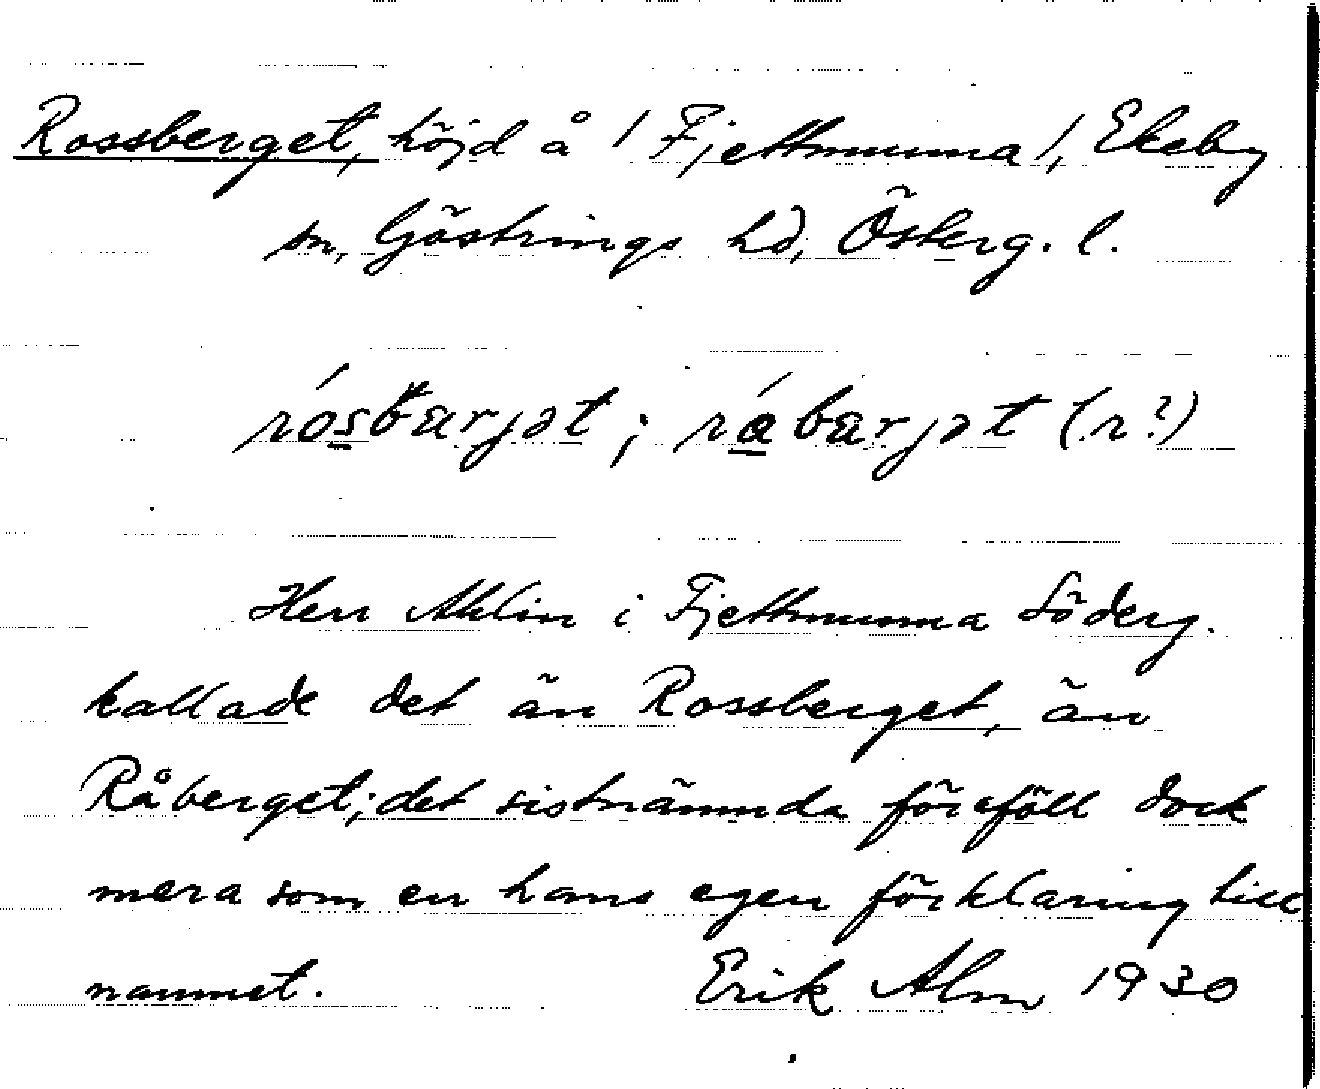 Rossberget, höjd å / Fjettmunna /, Ekeby
sn, Göstrings hd, Österg. l.
rósbærjət ; rábærjət (r?)
Herr Ahlin i Fjettmunna Söderg.
kallade det än Rossberget, än
Råberget; det sistnämnda föreföll dock
mera som en hans egen förklaring till
namnet. Erik Alm 1930